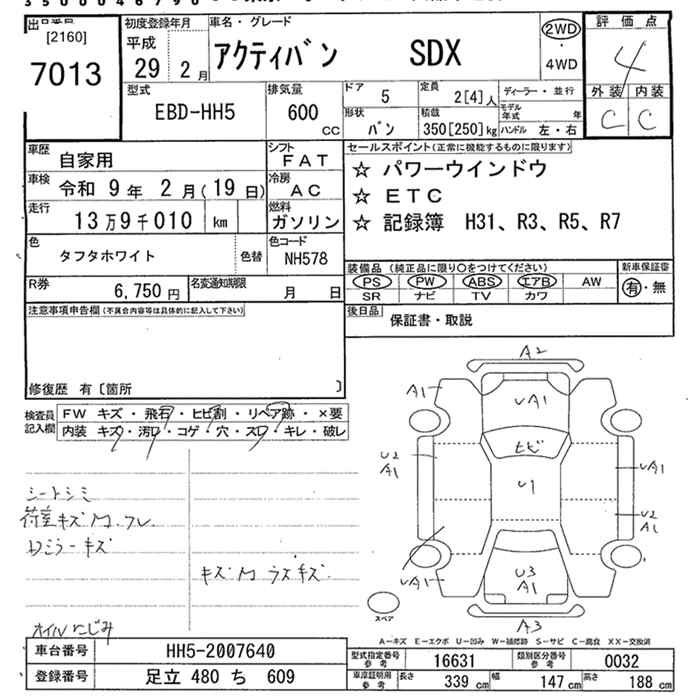 [2160]
7013
初度登録年月
平成
29年 2月
車名・グレード
アクティバン SDX
2WD
・
4WD
評価点
4
外装 内装
C C
型式
EBD-HH5
排気量
600
CC
ドア 5
形状 バン
定員 2[4]人
積載 350[250]kg
ディーラー・並行
モデル年式 年
ハンドル 左・右
車歴 自家用
シフト FAT
車検 令和 9年 2月(19日)
冷房 AC
走行 13万9千010 km
燃料 ガソリン
色 タフタホワイト 色替
色コード NH578
R券 6,750円
名変通知期限 月 日
セールスポイント(正常に機能するものに限ります)
☆ パワーウインドウ
☆ ETC
☆ 記録簿 H31、R3、R5、R7
装備品(純正品に限り○をつけてください)
PS PW ABS エアB AW
SR ナビ TV カワ
新車保証書
有・無
後日品 保証書・取説
注意事項申告欄(不具合内容等は具体的に記入して下さい)
修復歴 有〔箇所 〕
検査員記入欄
FW キズ・飛石・ヒビ割・リペア跡・×要
内装 キズ・汚れ・コゲ・穴・スレ・キレ・破レ
シートシミ
荷室キズM・フレ
Dミラーキズ
キズM ラズキズ
オイルにじみ
A2
A1
UA1
ヒビ
U2
A1
U1
UA1
U2
A1
UA1
U3
A1
A3
スペア
A-キズ E-エクボ U-凹み W-補修跡 S-サビ C-腐食 XX-交換済
車台番号 HH5-2007640
登録番号 足立 480 ち 609
型式指定番号 参考 16631
類別区分番号 参考 0032
車庫証明用 参考
長さ 339 cm
幅 147 cm
高さ 188 cm